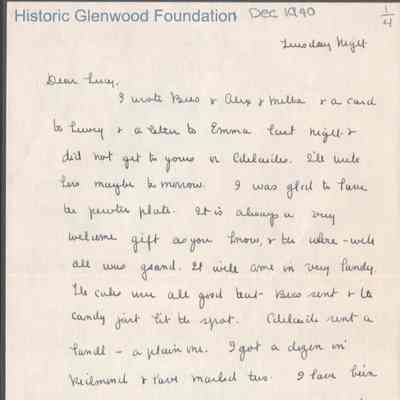 Historic Glenwood Foundation Dec 1940 1/4
Tuesday Night
Dear Lucy,
I wrote Bess & Alex & Melba & a card
to & a letter to Emma last night &
did not get to yours or Adelaide. I'll write
hers maybe to morrow. I was glad to have
the pewter plate. It is always a very
welcome gift as you know, & the - well
all was grand. It will come in very handy.
The cakes were all good that Bess sent & the
candy just hit the spot. Adelaide sent a
- a plain one. I got a dozen in
Richmond & have marked two. I have been